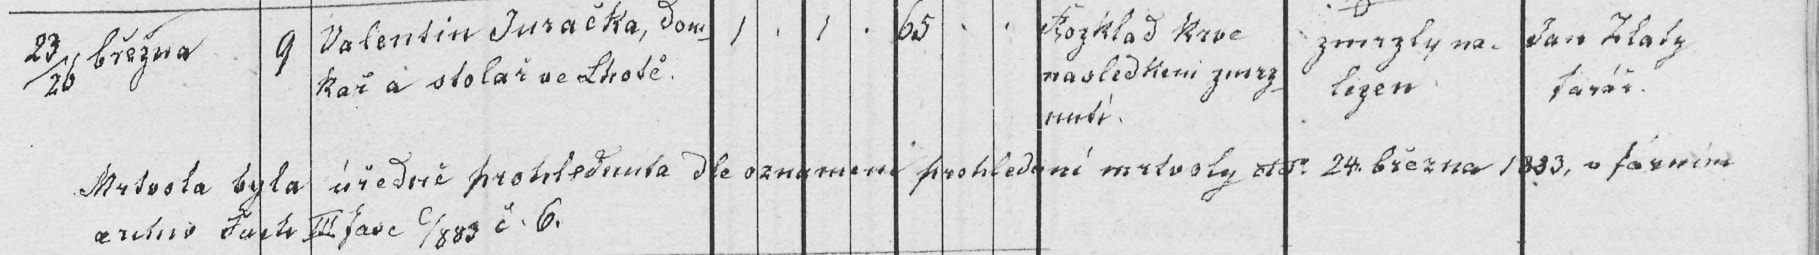 23/26 března 9 Valentin Juračka, dom- 1 . 1 . 65 . . Rozklad krve zmrzlý na- Jan Zlatý
kař a stolař ve Lhotě. následkem zmrz- lezen farář.
nutí.
Mrtvola byla úředně prohlednuta dle oznamení prohledání mrtvoly 24. března 1883, v farním
archiv Fach III fasc C/883 č. 6.